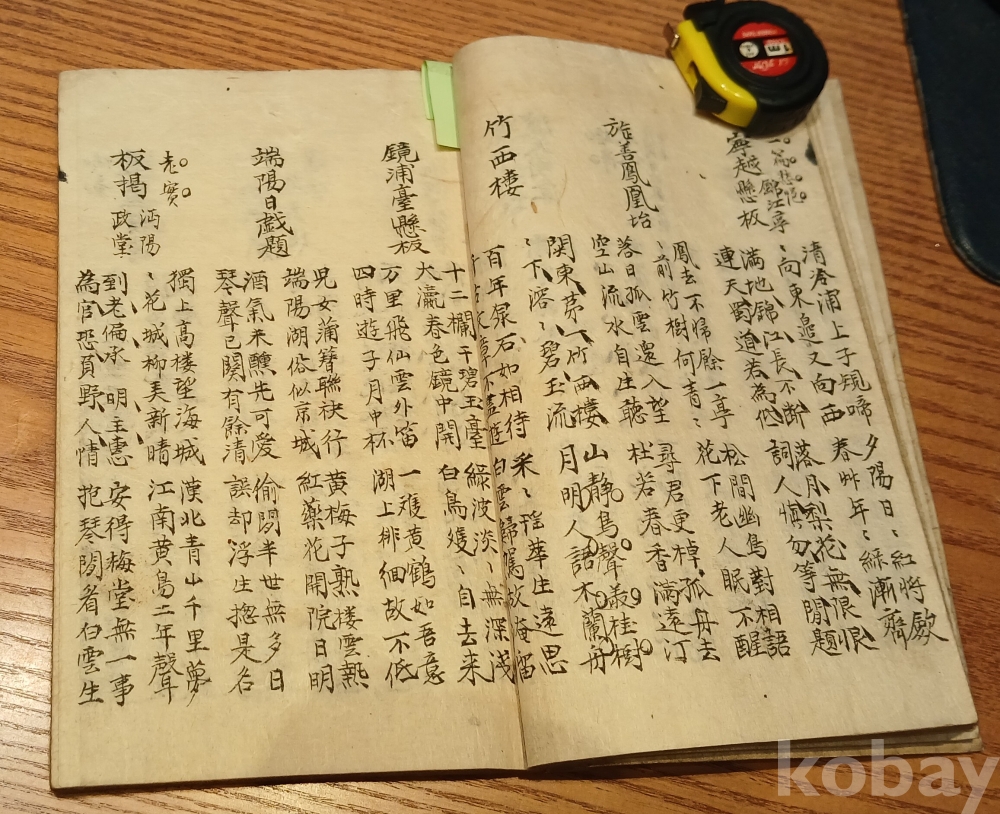 一篇悲惋
錦江亭
寧越懸板
清泠浦上子規啼 夕陽日〻紅將歛
〻向東邊又向西 春艸年〻綠漸齊
滿地錦江長不断 落月梨花無限恨
連天蜀道若為低 詞人愼勿等閒題
旌善鳳凰坮
鳳去不歸餘一亭 松間幽鳥對相語
〻前竹樹何青〻 花下老人眠不醒
落日孤雲還入望 尋君更棹孤舟去
空山流水自生聽 杜若春香滿遠汀
竹西楼
関東第一竹西樓 山靜鳥聲叢桂樹
〻下溶〻碧玉流 月明人語木蘭舟
百年泉石如相待 采〻瑶華生遠思
千古文章不盡遊 白雲歸駕故淹留
鏡浦臺懸板
十二欄干碧玉臺 綠波淡〻無深淺
大瀛春色鏡中開 白鳥雙〻自去来
万里飛仙雲外笛 一雙黄鶴如吾意
四時遊子月中杯 湖上徘徊故不低
端陽日戯題
兒女蒲簪聯袂行 黄梅子熟楼雲熱
端陽湖俗似京城 紅藥花開院日明
酒氣未醺先可愛 偷閒半世無多日
琴聲已闋有餘清 誤却浮生揔是名
老實
板揭 沔陽政堂
獨上高楼望海城 漢北青山千里夢
〻花城柳美新晴 江南黄鳥二年聲
到老偏承 明主惠 安得梅堂無一事
為官恐負野人情 抱琴閒看白雲生
1m
kobay